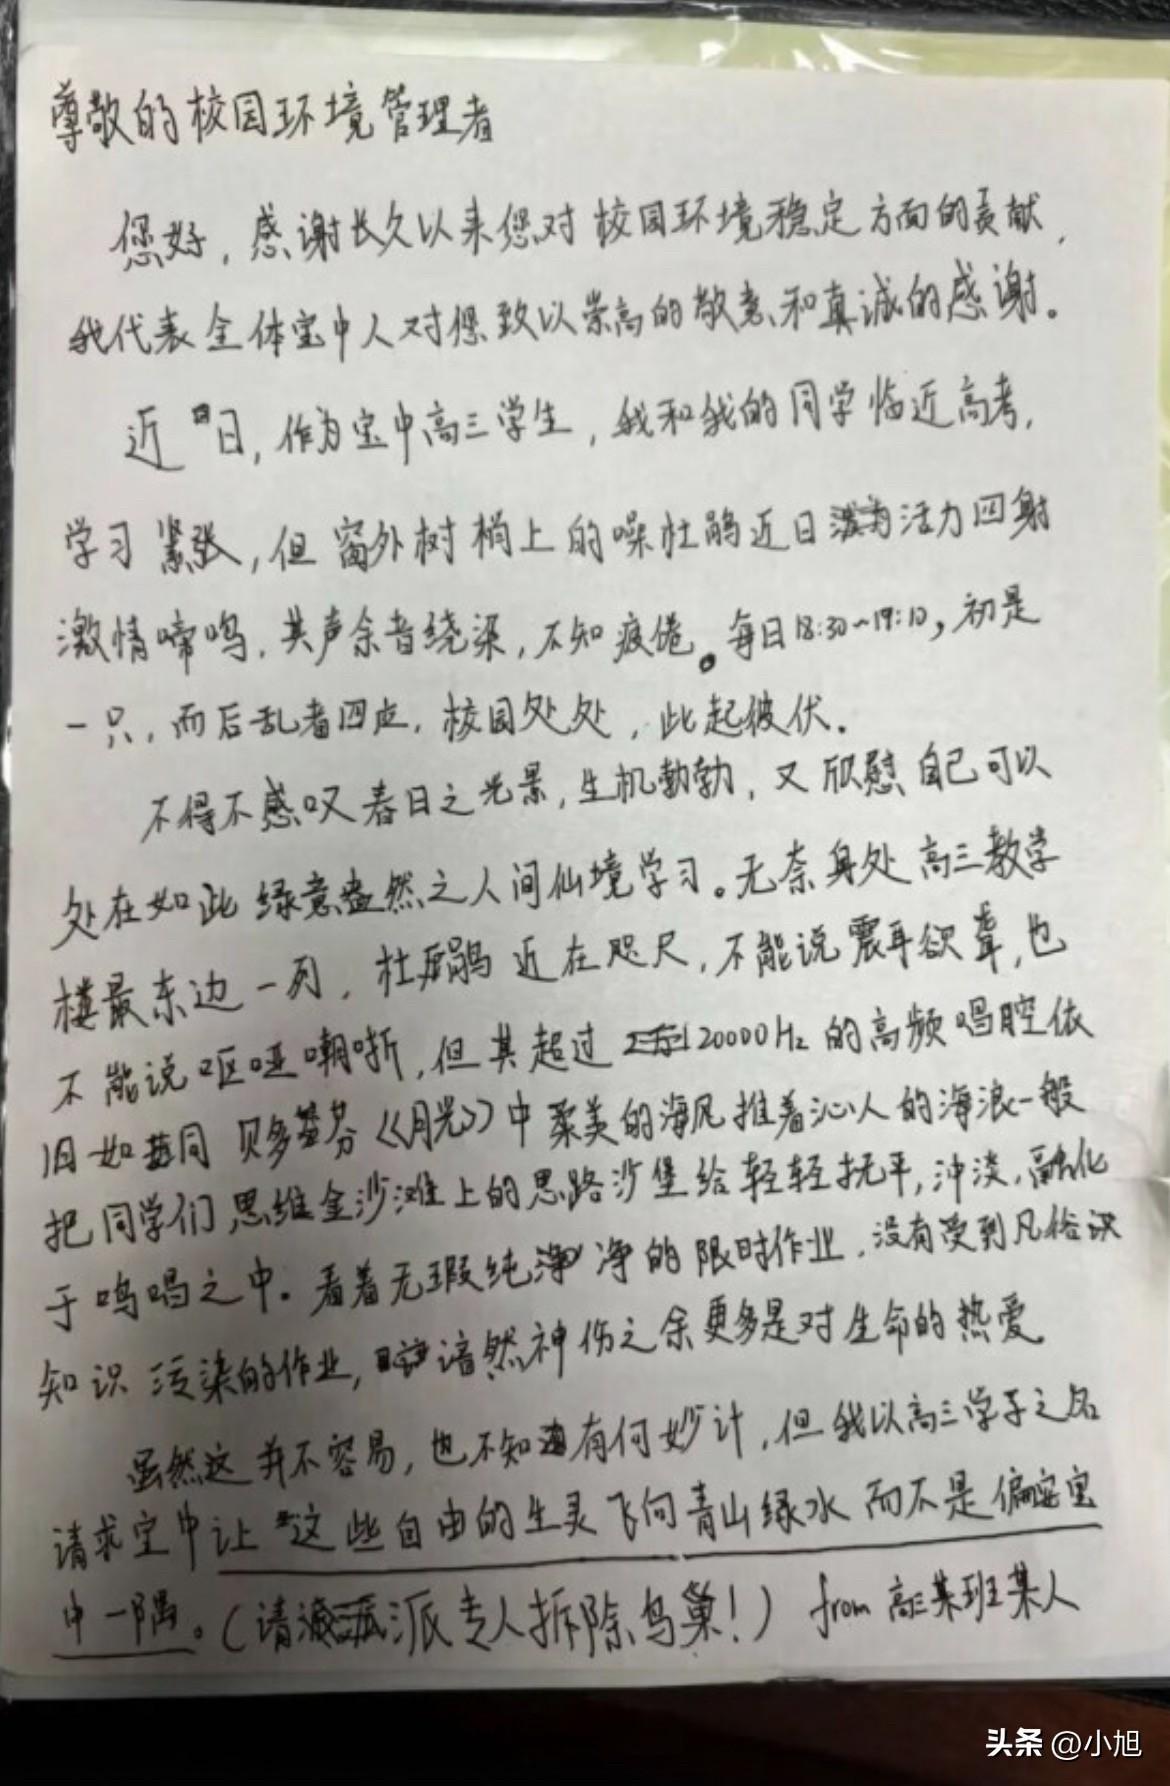 尊敬的校园环境管理者
您好，感谢长久以来您对校园环境稳定方面的贡献，
我代表全体宝中人对您致以崇高的敬意和真诚的感谢。
近日，作为宝中高三学生，我和我的同学临近高考，
学习紧张，但窗外树梢上的噪杜鹃近日活力四射
激情啼鸣，其声余音绕梁，不知疲倦。每日18:30~19:10，初是
一只，而后乱者四应，校园处处，此起彼伏.
不得不感叹春日之光景，生机勃勃，又欣慰自己可以
处在如此绿意盎然之人间仙境学习。无奈身处高三教学
楼最东边一列，杜鹃近在咫尺，不能说震耳欲聋，也
不能说呕哑嘲哳，但其超过20000Hz的高频唱腔依
旧如同贝多芬《月光》中柔美的海风推着沁人的海浪一般
把同学们思维金沙滩上的思路沙堡给轻轻抚平，冲淡，融化
于鸣唱之中。看着无瑕纯净的限时作业，没有受到凡俗
知识污染的作业，谙然神伤之余更多是对生命的热爱
虽然这并不容易，也不知有何妙计，但我以高三学子之名
请求宝中让这些自由的生灵飞向青山绿水而不是偏安宝
中一隅。（请派专人拆除鸟巢！） from 高三某班某人
头条 @小旭